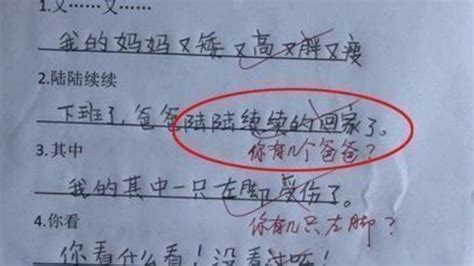 1.又……又……
我的妈妈又矮又高又胖又瘦
2.陆陆续续
下班了，爸爸陆陆续续的回家了。
你有几个爸爸？
3.其中
我的其中一只左脚受伤了。
你有几只左脚？
4.你看
你看什么看！没看过吗！